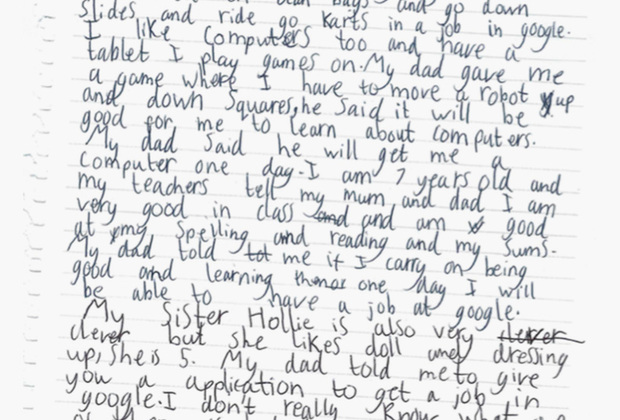 bean bags and go down
slides and ride go karts in a job in google.
I like computers too and have a
tablet I play games on. My dad gave me
a game where I have to move a robot up
and down squares, he said it will be
good for me to learn about computers.
My dad said he will get me a
computer one day. I am 7 years old and
my teachers tell my mum and dad I am
very good in class and and am good
at my spelling and reading and my sums.
My dad told me if I carry on being
good and learning one day I will
be able to have a job at google.
My Sister Hollie is also very clever
clever but she likes doll and dressing
up, She is 5. My dad told me to give
you a application to get a job in
google. I don't really know what